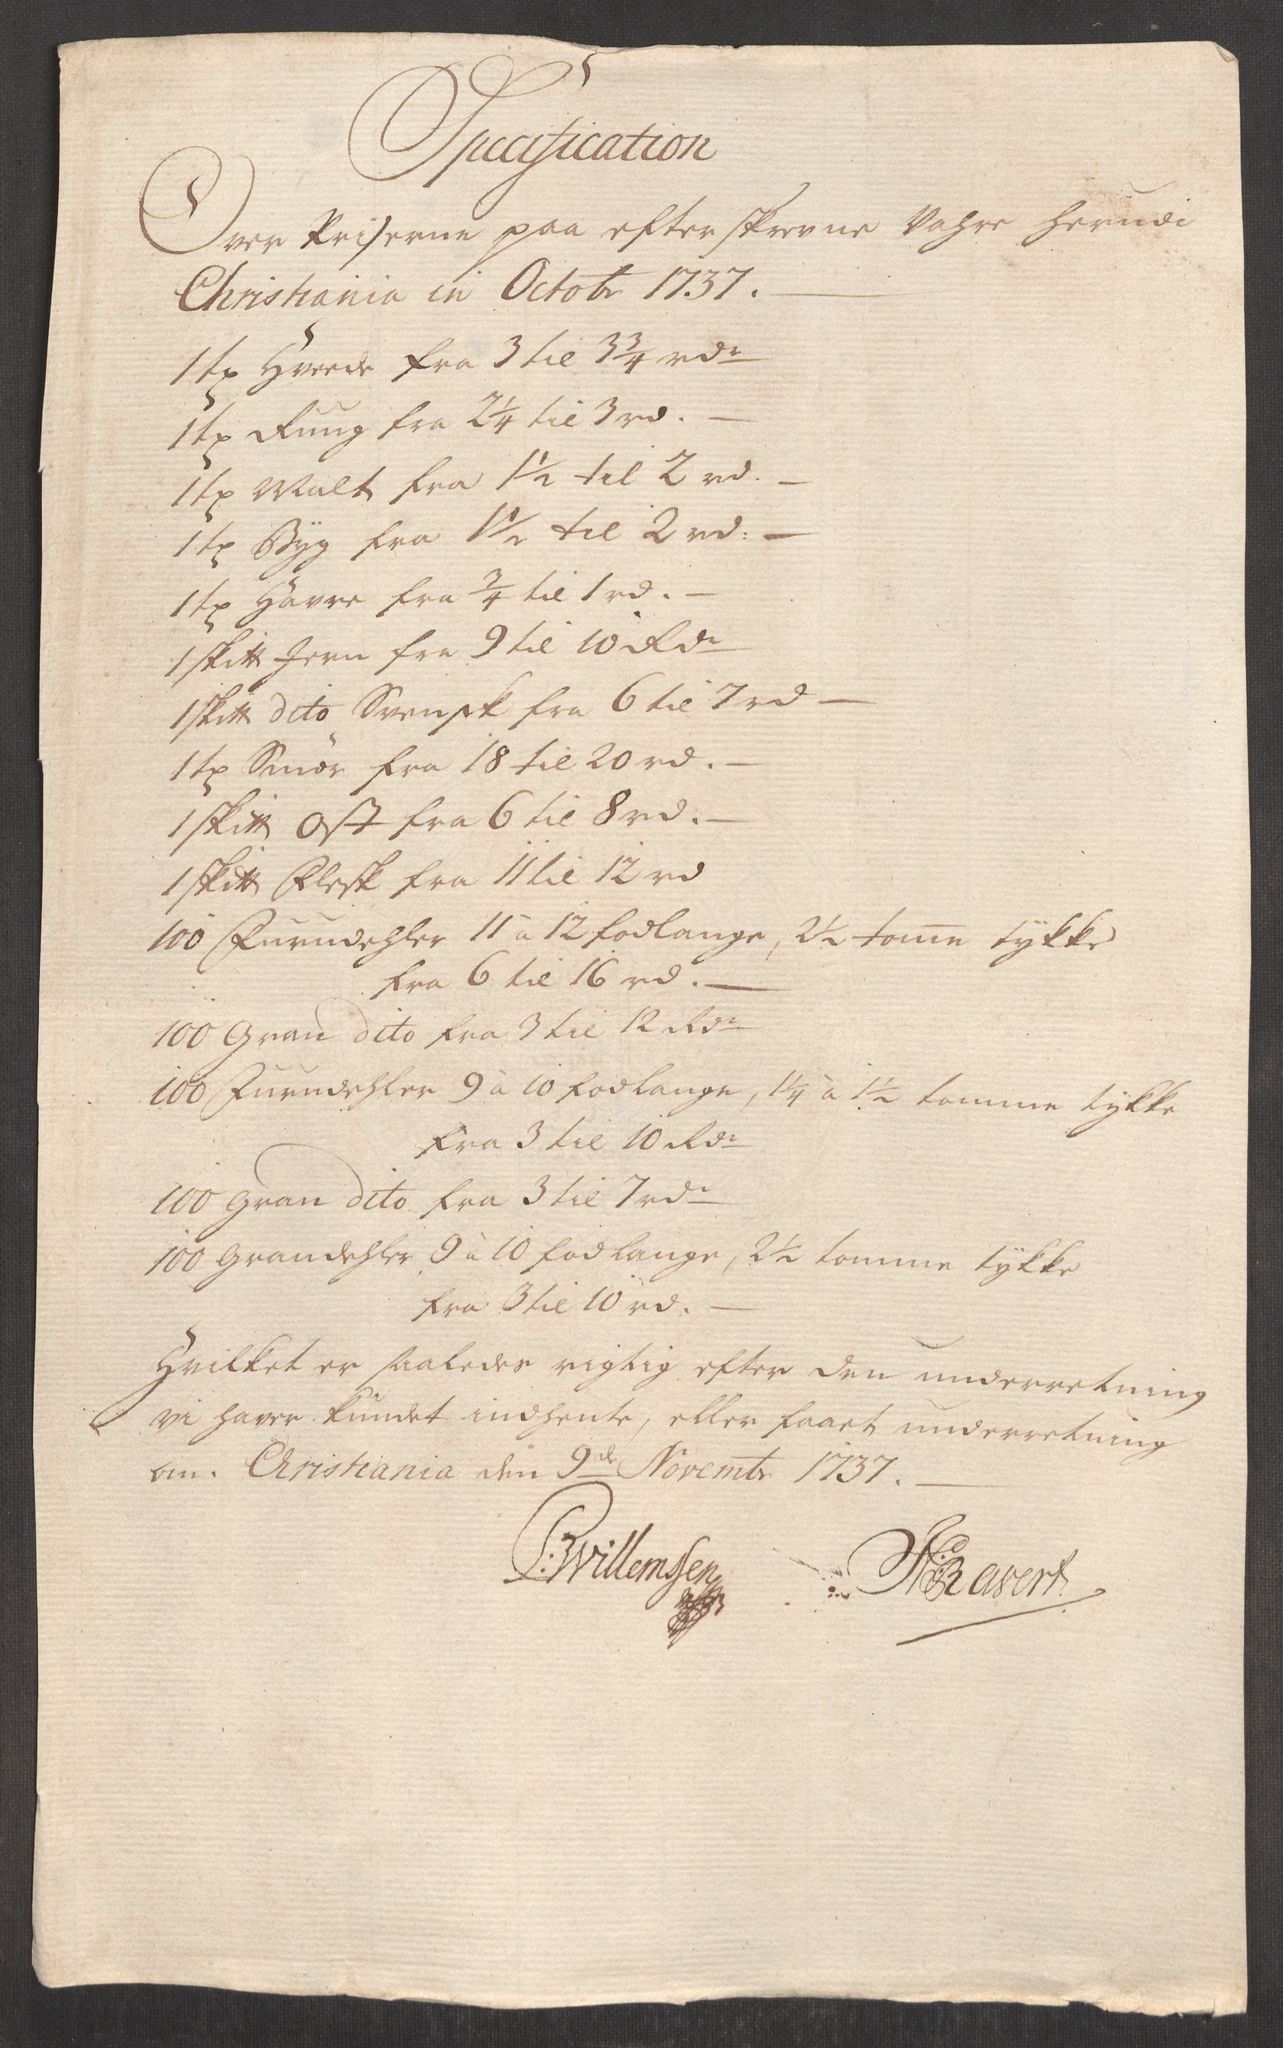 Specification
Over Priserne paa efterskrevne Vahre herudi
Christiania in Octobr 1737.
1 tp Hveede fra 3 til 3¾ rdr
1 tp Ruug fra 2¼ til 3 rd.
1 tp Malt fra 1½ til 2 rd.
1 tp Byg fra 1½ til 2 rd:
1 tp Havre fra ¾ til 1 rd.
1 skitt Jern fra 9 til 10 Rdr
1 skitt dito Svensk fra 6 til 7 rd
1 tp Smör fra 18 til 20 rd.
1 skitt Ost fra 6 til 8 rd.
1 skitt Flesk fra 11 til 12 rd
100 Furudehler 11 à 12 fodlange, 2½ tome tykke
fra 6 til 16 rd.
100 Gran dito fra 3 til 12 Rdr
100 Furudehler 9 à 10 fodlange, 1¼ à 1½ tomme tykke
fra 3 til 10 Rdr
100 Gran dito fra 3 til 7 rdr
100 Grandehler 9 à 10 fodlange, 2½ tomme tykke
fra 3 til 10 rd.
Hvilket er saaledes rigtig efter den underretning
vi haver kundet indhente, eller faaet underretning
om. Christiania den 9de Novembr 1737.
Willemssen Ravert